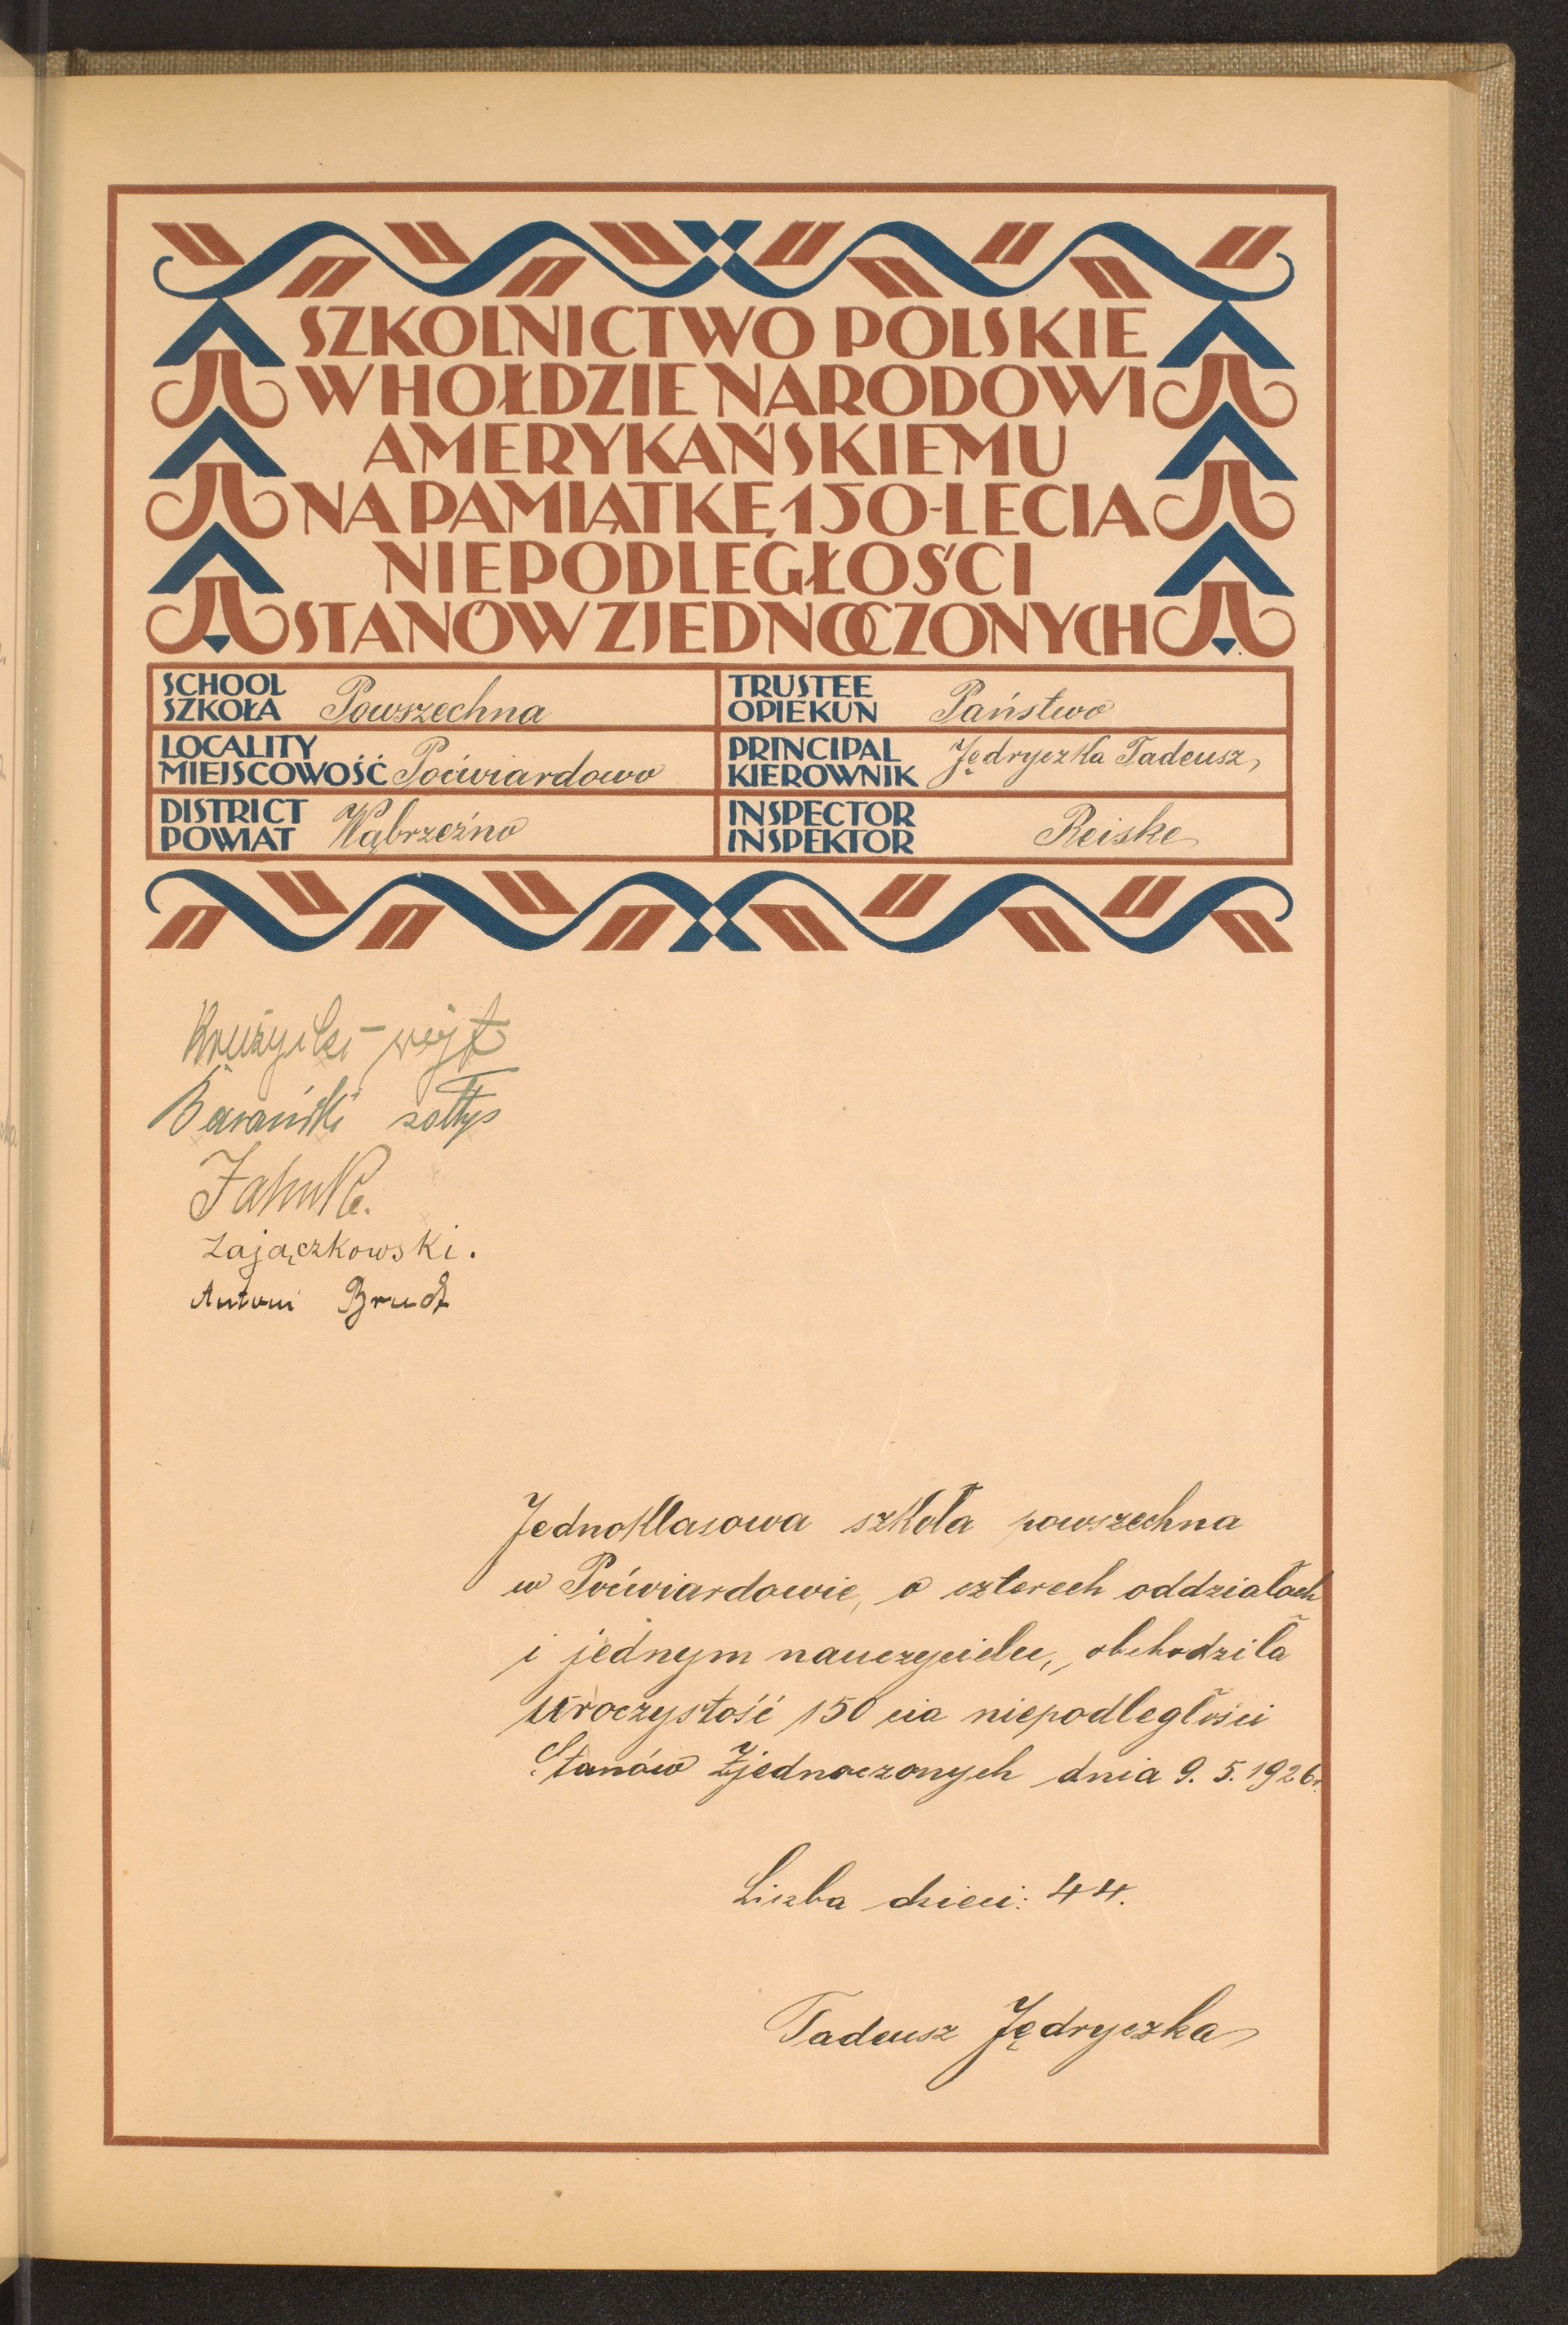 SZKOLNICTWO POLSKIE
W HOŁDZIE NARODOWI
AMERYKAŃSKIEMU
NA PAMIĄTKĘ 150-LECIA
NIEPODLEGŁOŚCI
STANÓW ZJEDNOCZONYCH
SCHOOL
SZKOŁA Powszechna
TRUSTEE
OPIEKUN Państwo
LOCALITY
MIEJSCOWOŚĆ Poćwiardowo
PRINCIPAL
KIEROWNIK Jędryczka Tadeusz
DISTRICT
POWIAT Wąbrzeźno
INSPECTOR
INSPEKTOR Reiske
wójt
Barański sołtys
Jahnke.
Zajączkowski.
Antoni
Jednoklasowa szkoła powszechna
w Poćwiardowie, o czterech oddziałach
i jednym nauczycielu, obchodziła
uroczystość 150 cia niepodległości
Stanów Zjednoczonych dnia 9. 5. 1926r.
Liczba dzieci: 44.
Tadeusz Jędryczka